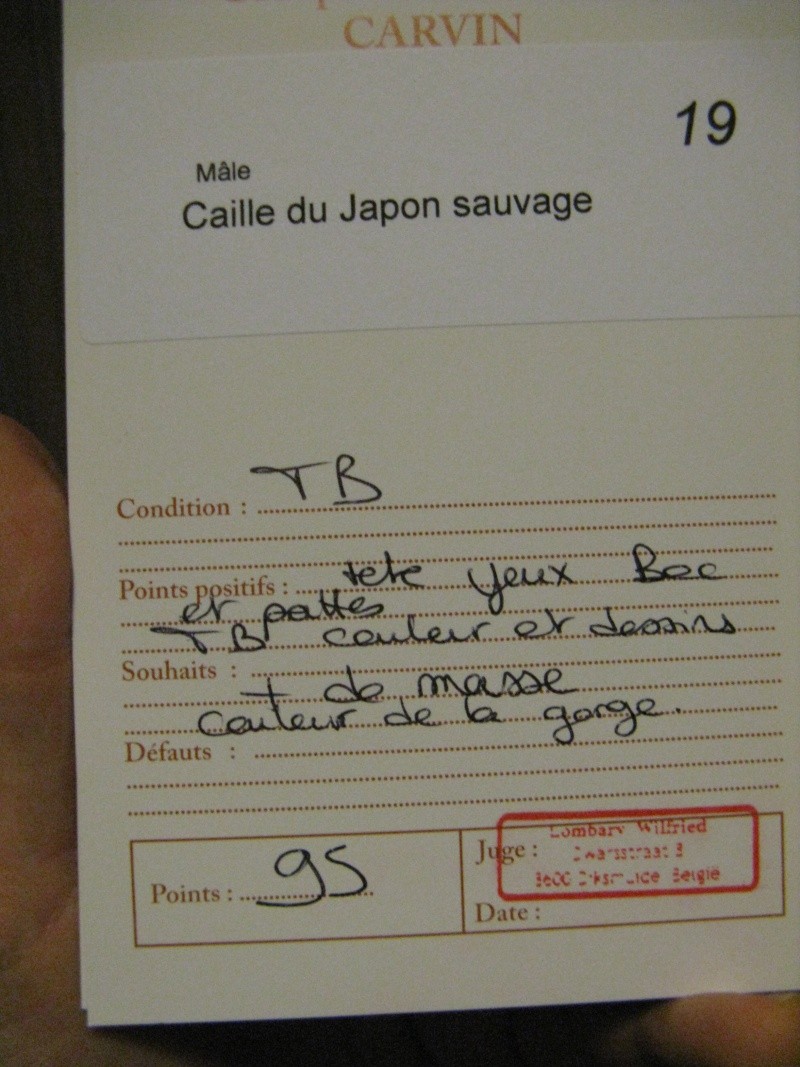 CARVIN
19
Mâle
Caille du Japon sauvage
Condition : TB
Points positifs : tete yeux Bec
et pattes
TB couleur et dessins
Souhaits :
+ de masse
couleur de la gorge.
Défauts :
Points : 95
Juge :
Lombary Wilfried
België
Date :